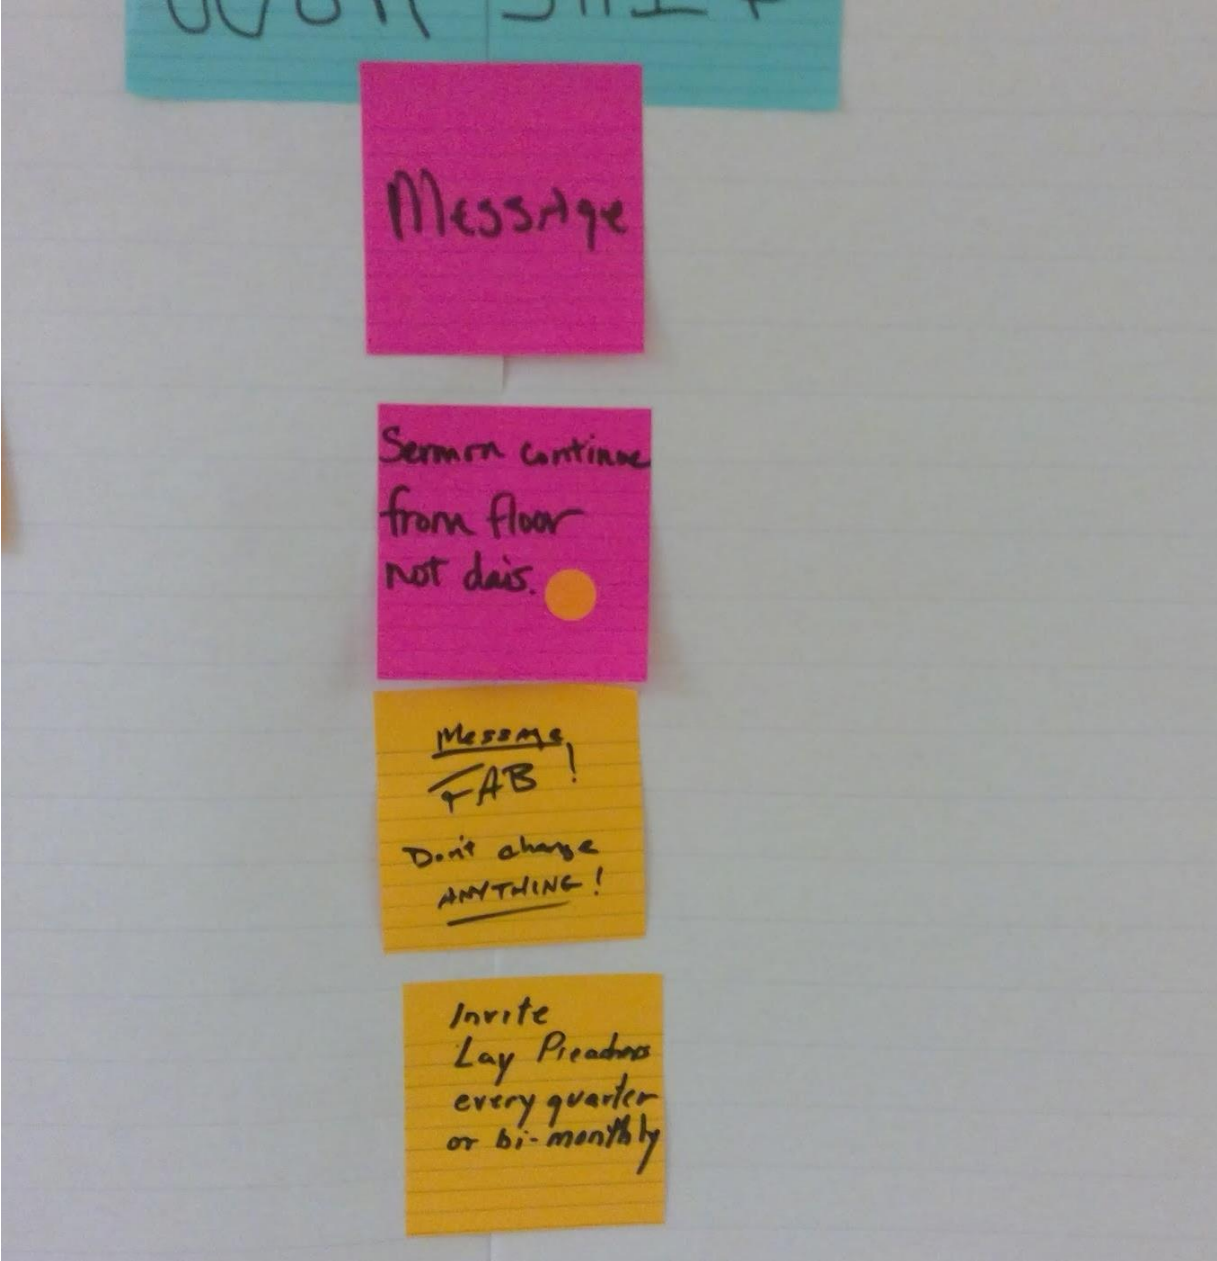 WORSHIP
Message
Sermon continue
from floor
not dais.
Message
FAB!
Don't change
ANYTHING!
Invite
Lay Preachers
every quarter
or bi-monthly